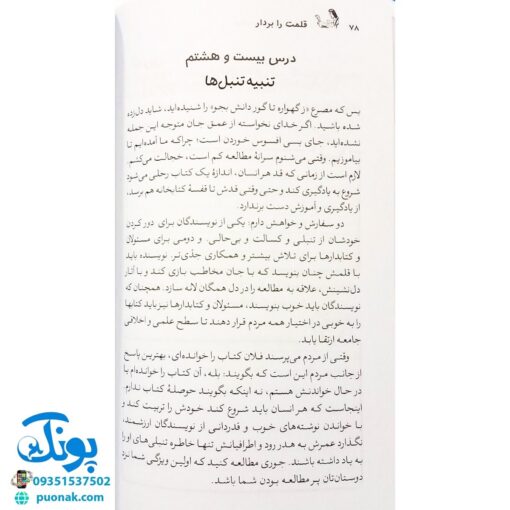 ۷۸
قلمت را بردار
درس بیست و هشتم
تنبیه تنبل‌ها
بس که مصرع «ز گهواره تا گور دانش بجو» را شنیده‌اید، شاید دل‌زده
شده باشید. اگر خدای نخواسته از عمق جان متوجه این جمله
نشده‌اید، جای بسی افسوس خوردن است؛ چراکه ما آمده‌ایم تا
بیاموزیم. وقتی می‌شنوم سرانهٔ مطالعه کم است، خجالت می‌کشم.
لازم است از زمانی که قد هر انسان، اندازهٔ یک کتاب رحلی می‌شود
شروع به یادگیری کند و حتی وقتی قدش تا قفسهٔ کتابخانه هم برسد،
از یادگیری و آموزش دست برندارد.
دو سفارش و خواهش دارم: یکی از نویسندگان برای دور کردن
خودشان از تنبلی و کسالت و بی‌حالی. و دومی برای مسئولان
و کتابدارها برای تلاش بیشتر و همکاری جدّی‌تر. نویسنده باید
با قلمش چنان بنویسد که با جان مخاطب بازی کند و با آثار
دل‌نشینش، علاقه به مطالعه را در دل همگان لانه سازد. همچنان که
نویسندگان باید خوب بنویسند، مسئولان و کتابدارها نیز باید کتابها
را به خوبی در اختیار همه مردم قرار دهند تا سطح علمی و اخلاقی
جامعه ارتقا یابد.
وقتی از مردم می‌پرسند فلان کتاب را خوانده‌ای، بهترین پاسخ
از جانب مردم این است که بگویند: بله، آن کتاب را خوانده‌ام یا
در حال خواندنش هستم، نه اینکه بگویند حوصلهٔ کتاب ندارم.
اینجاست که هر انسان باید شروع کند خودش را تربیت کند و
با خواندن نوشته‌های خوب و قدردانی از نویسندگان ارزشمند،
نگذارد عمرش به هدر رود و اطرافیانش تنها خاطره تنبلی‌های او را
به یاد داشته باشند. جوری مطالعه کنید که اولین ویژگی شما نزد
دوستان‌تان پر مطالعه بودن شما باشد.
پونک
09351537502
puonak.com